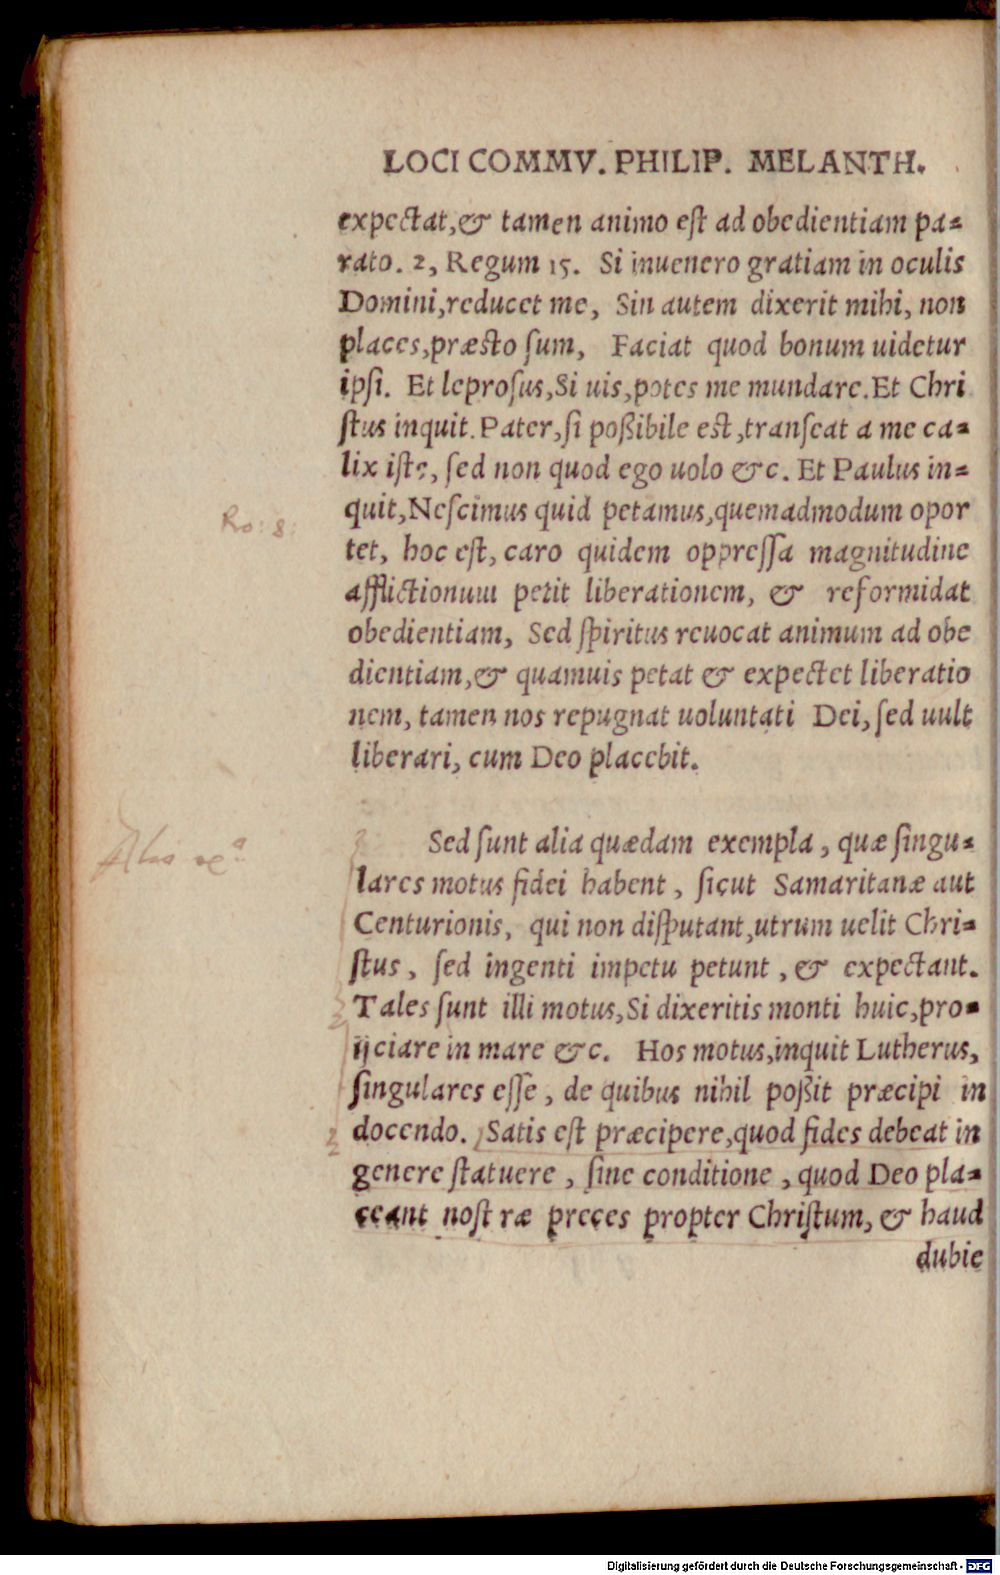 LOCI COMMV. PHILIP. MELANTH.
expectat,& tamen animo eſt ad obedientiam pa⸗
rato. 2, Regum 15. Si inuenero gratiam in oculis
Domini,reducet me, Sin autem dixerit mihi, non
places,præsto ſum, Faciat quod bonum uidetur
ipſi. Et leproſus,Si uis,potes me mundare.Et Chri
ſtus inquit.Pater,ſi poßibile est,tranſeat a me ca⸗
lix iſte, ſed non quod ego uolo &c. Et Paulus in⸗
quit,Neſcimus quid petamus,quemadmodum opor
Ro: 8:
tet, hoc eſt, caro quidem oppreſſa magnitudine
afflictionum petit liberationem, & reformidat
obedientiam, Sed ſpiritus reuocat animum ad obe
dientiam,& quamuis petat & expectet liberatio
nem, tamen nos repugnat uoluntati Dei, ſed uult
liberari, cum Deo placebit.
Sed ſunt alia quædam exempla, quæ ſingu⸗
lares motus fidei habent, ſicut Samaritanæ aut
Centurionis, qui non diſputant,utrum uelit Chri⸗
ſtus, ſed ingenti impetu petunt, & expectant.
Tales ſunt illi motus,Si dixeritis monti huic,pro⸗
ijciare in mare &c. Hos motus,inquit Lutherus,
ſingulares eſſe, de quibus nihil poßit præcipi in
docendo. Satis eſt præcipere,quod fides debeat in
genere ſtatuere, ſine conditione, quod Deo pla⸗
ceant noſtræ preces propter Chriſtum, & haud
dubie
Digitalisierung gefördert durch die Deutsche Forschungsgemeinschaft - DFG